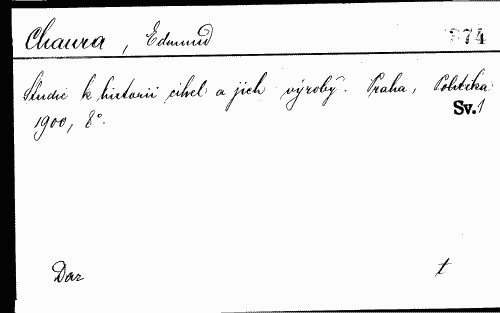 Chaura, Edmund 974
Studie k historii cihel a jich výroby. Praha, Politika
Sv. 1
1900, 8°.
Dar t